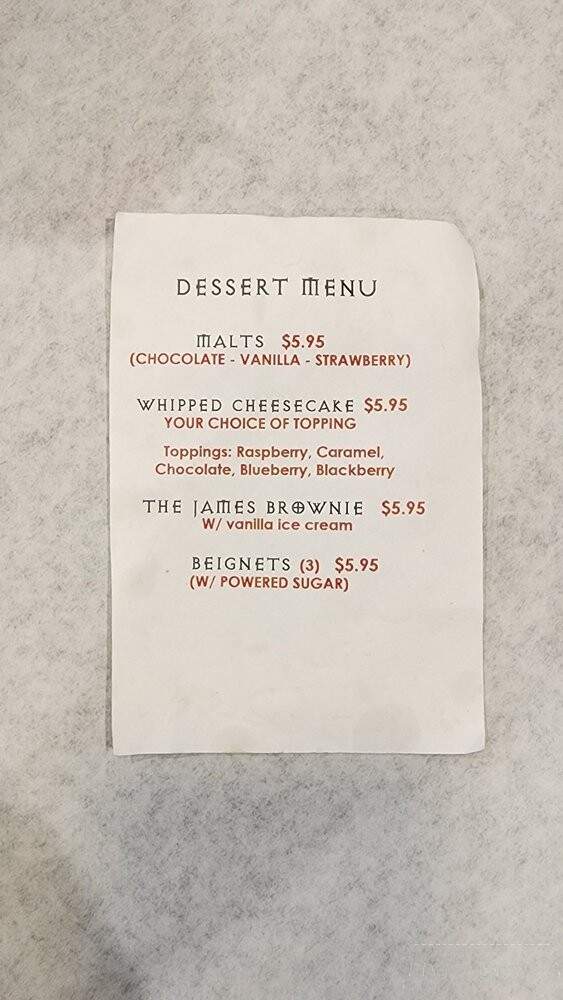 DESSERT MENU
MALTS $5.95
(CHOCOLATE - VANILLA - STRAWBERRY)
WHIPPED CHEESECAKE $5.95
YOUR CHOICE OF TOPPING
Toppings: Raspberry, Caramel,
Chocolate, Blueberry, Blackberry
THE JAMES BROWNIE $5.95
W/ vanilla ice cream
BEIGNETS (3) $5.95
(W/ POWERED SUGAR)